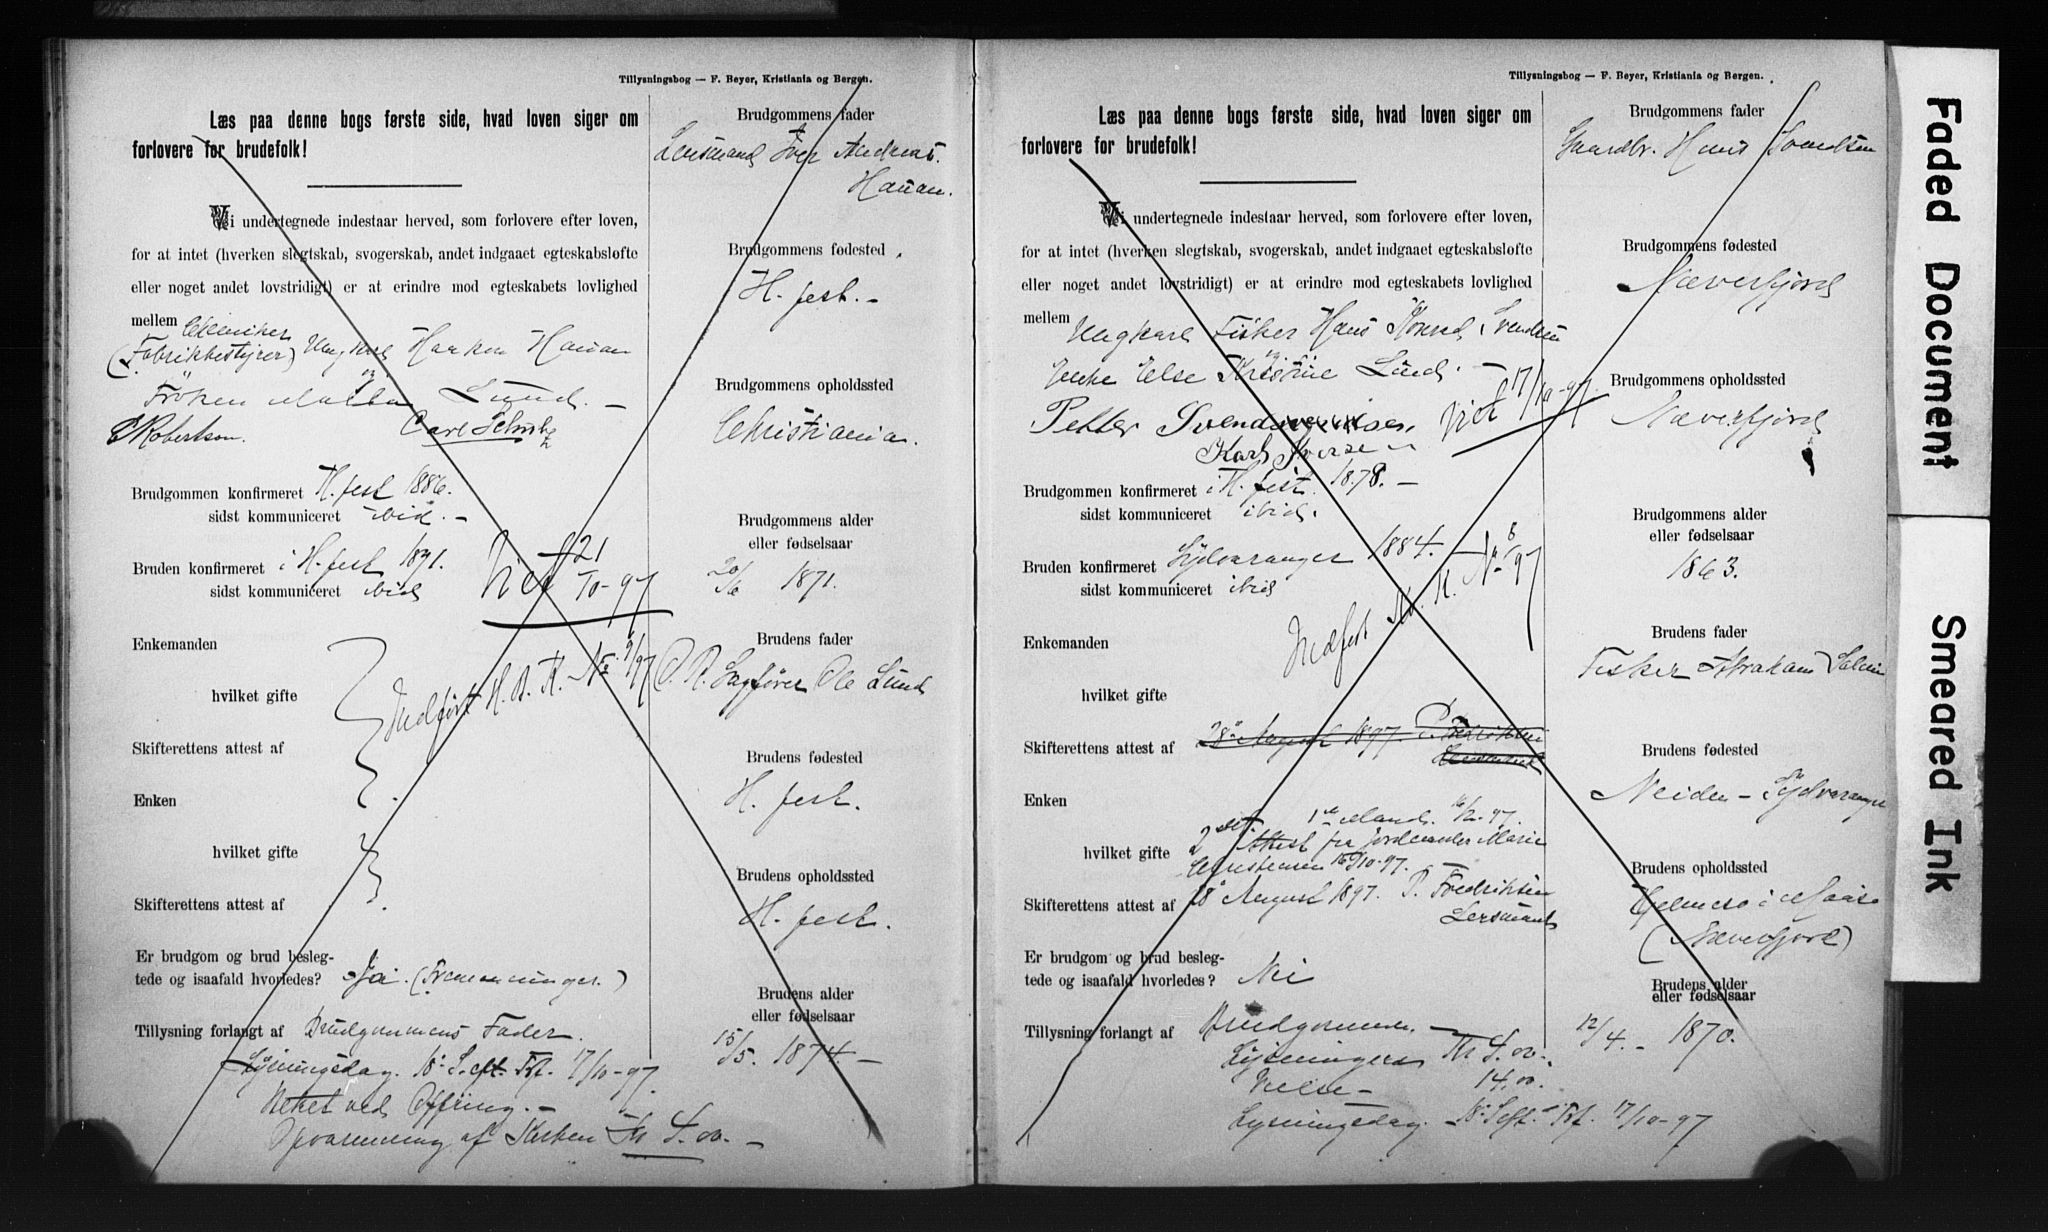 Tillysningsbog — F. Beyer, Kristiania og Bergen.
Læs paa denne bogs første side, hvad loven siger om
forlovere for brudefolk!
Vi undertegnede indestaar herved, som forlovere efter loven,
for at intet (hverken slegtskab, svogerskab, andet indgaaet egteskabsløfte
eller noget andet lovstridigt) er at erindre mod egteskabets lovlighed
mellem Chemiker
(Fabrikbestyrer) Ungkarl Haakon Hauan
og
Fröken Lund. —
Robertson. Carl Schultz
Brudgommen konfirmeret H.fest 1886.
sidst kommuniceret ibid. —
Bruden konfirmeret i H.fest 1891.
sidst kommuniceret ibid
Viet 21/10-97
Enkemanden
hvilket gifte
Indført H. B. K. No 9/97
Skifterettens attest af
Enken
hvilket gifte
Skifterettens attest af
Er brudgom og brud besleg-
tede og isaafald hvorledes? Ja.
Tillysning forlangt af Brudgommens Fader.
Lysningsdag. 18. Sept. Trf. 17/10-97
ved Offring. —
Opvarmning af Kirken Kr 4.00. —
Brudgommens fader
Lensmand Iver Andreas
Hauan.
Brudgommens fødested
H. fest. —
Brudgommens opholdssted
Christiania.
Brudgommens alder
eller fødselsaar
20/6 1871.
Brudens fader
O. R. Sagfører Ole Lund
Brudens fødested
H. fest.
Brudens opholdssted
H. fest.
Brudens alder
eller fødselsaar
15/5. 1874 —
Tillysningsbog — F. Beyer, Kristiania og Bergen.
Læs paa denne bogs første side, hvad loven siger om
forlovere for brudefolk!
Vi undertegnede indestaar herved, som forlovere efter loven,
for at intet (hverken slegtskab, svogerskab, andet indgaaet egteskabsløfte
eller noget andet lovstridigt) er at erindre mod egteskabets lovlighed
mellem Ungkarl Fisker Hans Konrad Svendsen
og
Enke Else Kristine Lund. —
Petter Svendsen
Karl Iversen
Viet 17/10-97.
Brudgommen konfirmeret i H. fest. 1878. —
sidst kommuniceret ibid.
Bruden konfirmeret Sydvaranger 1884.
sidst kommuniceret ibid
Indført M. K. No 8/97
Enkemanden
hvilket gifte
Skifterettens attest af 28de August 1897. P. Fredriksen
Lensmand
Enken 1ste Mand. 16/2-97.
hvilket gifte 2det. Attest fra Jordemoder Marie
Christensen 16/10-97.
Skifterettens attest af 28de August 1897. P. Fredriksen
Lensmand
Er brudgom og brud besleg-
tede og isaafald hvorledes? Nei
Tillysning forlangt af Brudgommen. —
Lysningen Kr 4.00.
Vielse — 14.00.
Lysningsdag. 18. Sept. Trf. 17/10-97
Brudgommens fader
Gaardbr. Hans Svendsen
Brudgommens fødested
Næverfjord
Brudgommens opholdssted
Næverfjord
Brudgommens alder
eller fødselsaar
1863.
Brudens fader
Fisker Abraham
Brudens fødested
Neiden — Sydvaranger
Brudens opholdssted
Hjelmsø i Maasø
(Næverfjord)
Brudens alder
eller fødselsaar
12/4. — 1870.
Faded Document
Smeared Ink